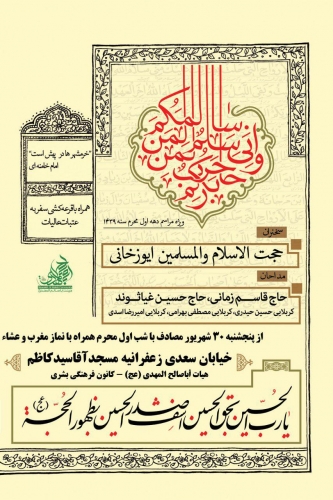 انی سلم لمن سالمکم و حرب لمن حاربکم
"خرمشهرها در پیش است"
امام خامنه ای
همراه با قرعه کشی سفر به
عتبات عالیات
ویژه مراسم دهه اول محرم سنه ۱۴۳۹
سخنران
حجت الاسلام والمسلمین ایوزخانی
مداحان
حاج قاسم زمانی، حاج حسین غیاثوند
کربلایی حسین حیدری، کربلایی مصطفی بهرامی، کربلایی امیررضا اسدی
از پنجشنبه ۳۰ شهریور مصادف با شب اول محرم همراه با نماز مغرب و عشاء
خیابان سعدی زعفرانیه مسجد آقاسیدکاظم
هیات اباصالح المهدی (عج) - کانون فرهنگی بشری
یارب الحسین بحق الحسین اشف صدر الحسین بظهور الحجة (عج)